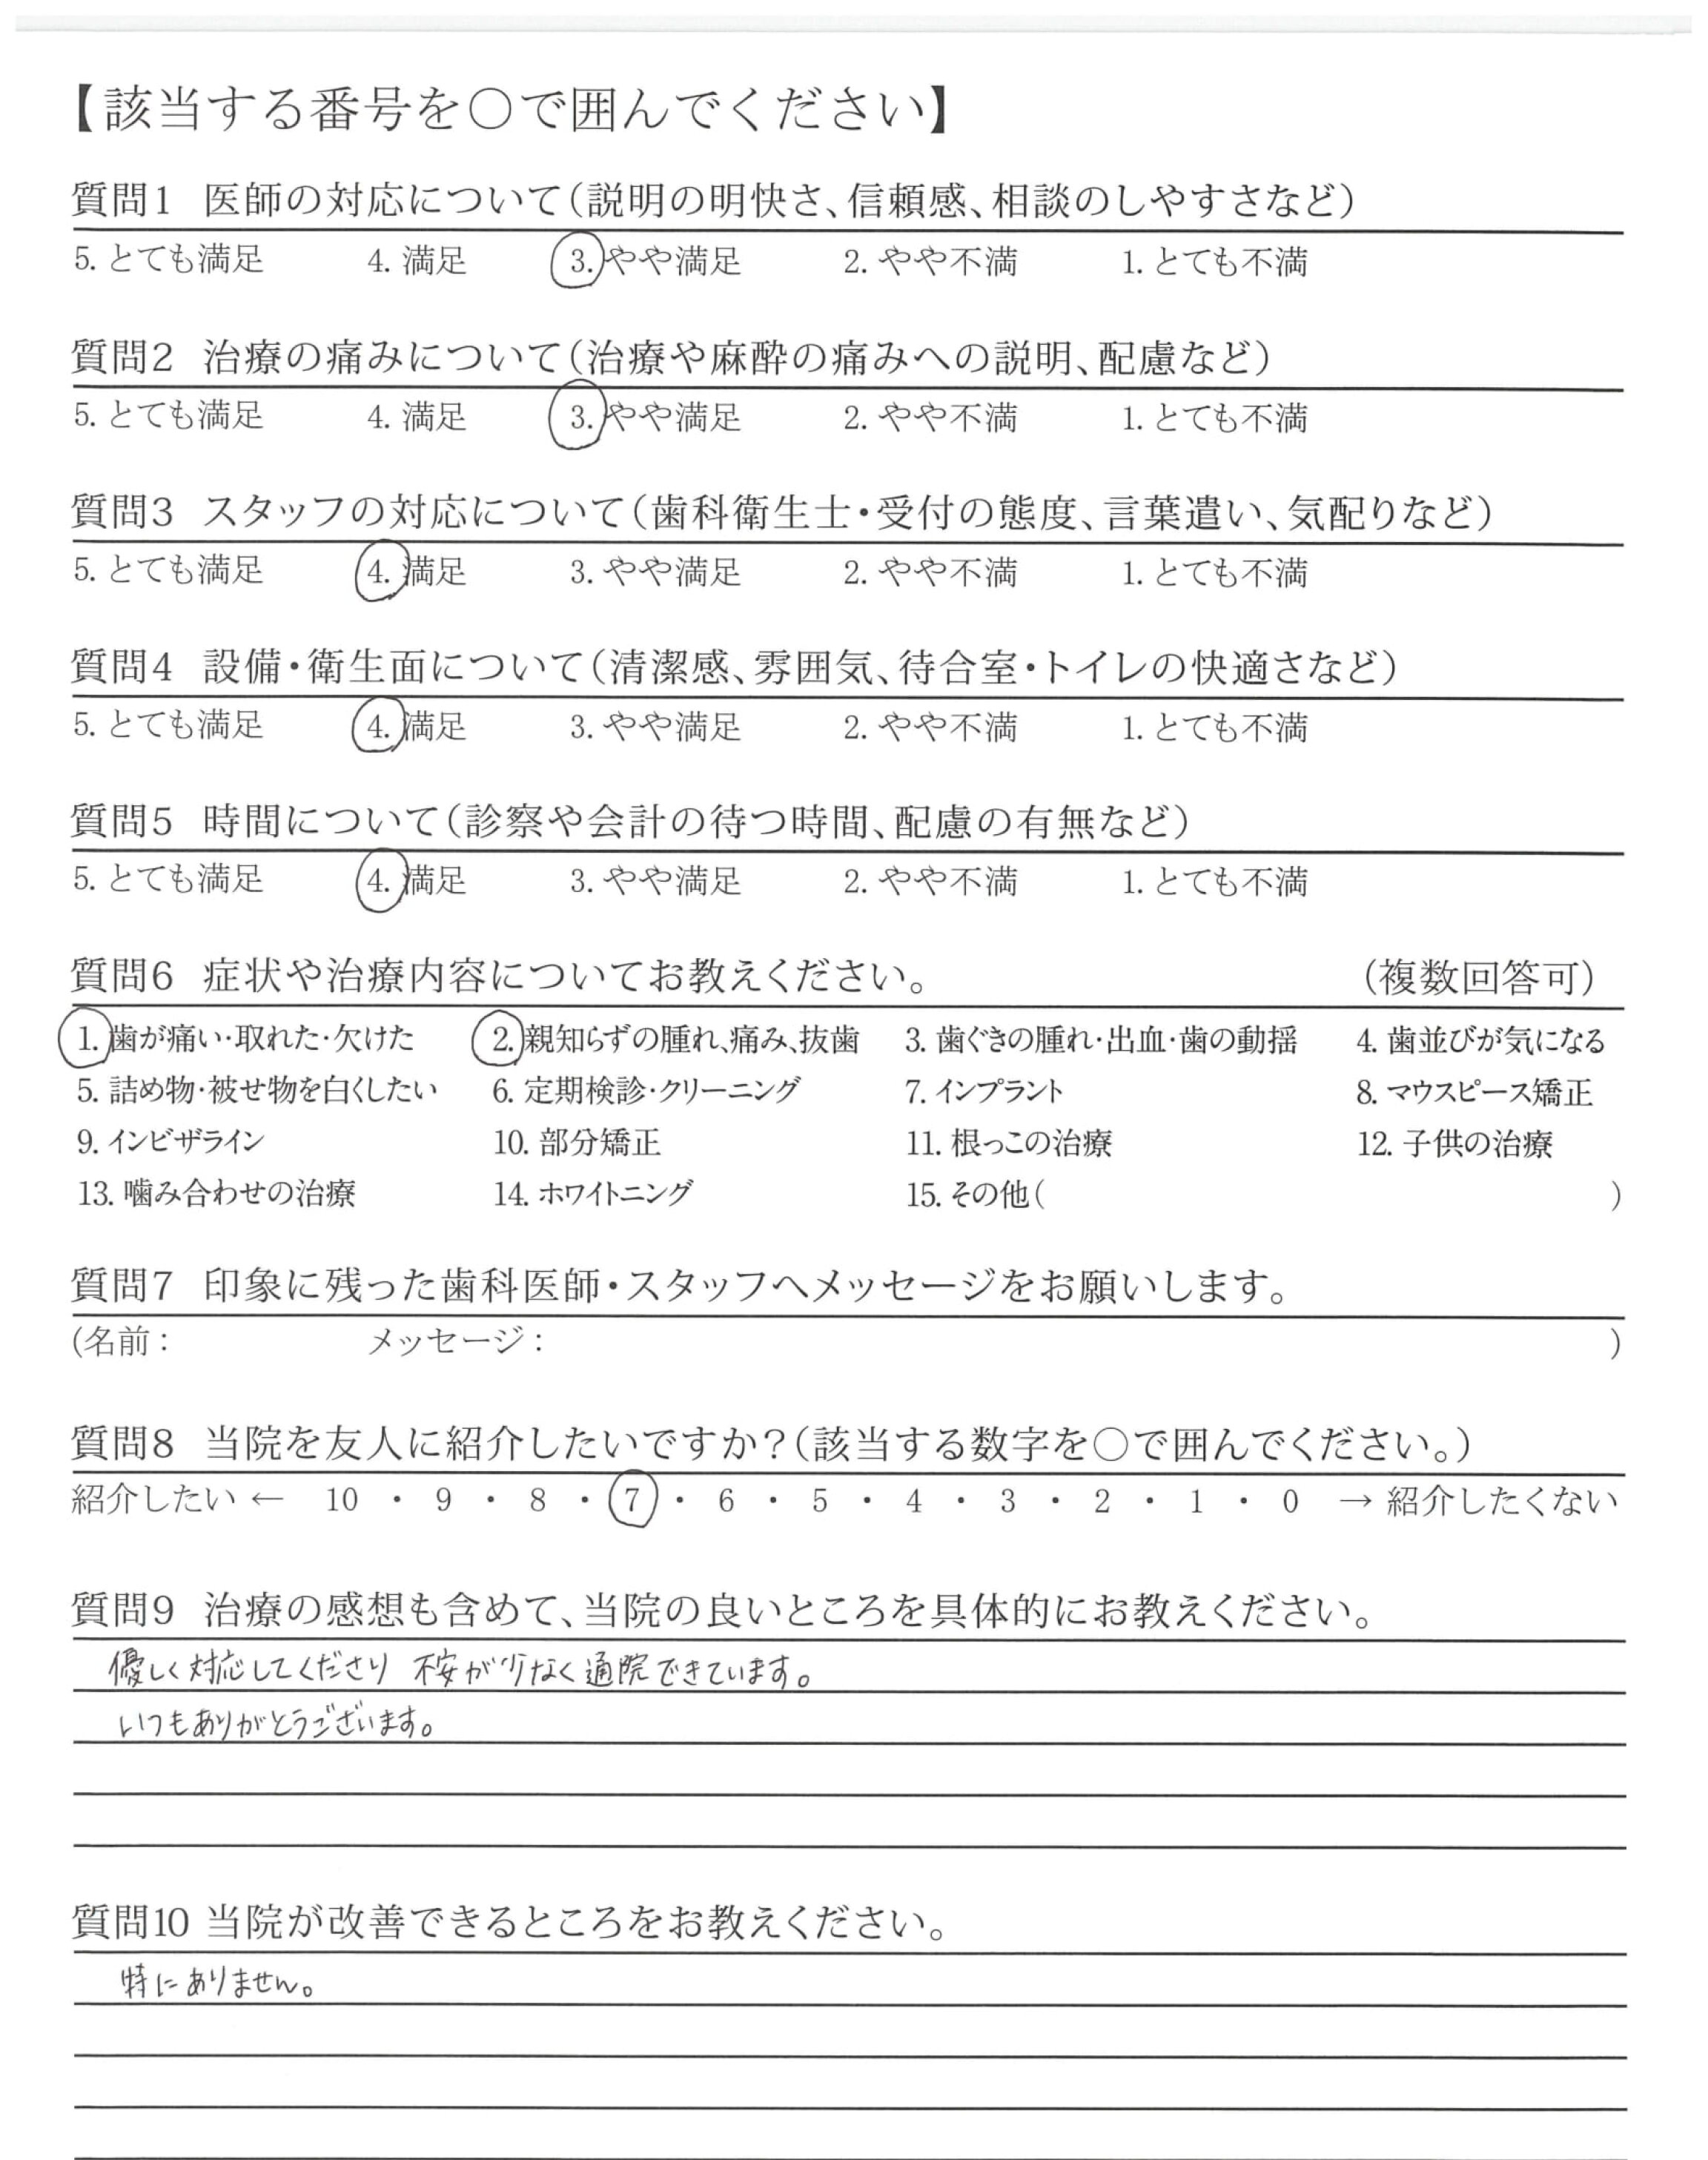 【該当する番号を○で囲んでください】
質問1 医師の対応について(説明の明快さ、信頼感、相談のしやすさなど)
5. とても満足 4. 満足 3. やや満足 2. やや不満 1. とても不満
質問2 治療の痛みについて(治療や麻酔の痛みへの説明、配慮など)
5. とても満足 4. 満足 3. やや満足 2. やや不満 1. とても不満
質問3 スタッフの対応について(歯科衛生士・受付の態度、言葉遣い、気配りなど)
5. とても満足 4. 満足 3. やや満足 2. やや不満 1. とても不満
質問4 設備・衛生面について(清潔感、雰囲気、待合室・トイレの快適さなど)
5. とても満足 4. 満足 3. やや満足 2. やや不満 1. とても不満
質問5 時間について(診察や会計の待つ時間、配慮の有無など)
5. とても満足 4. 満足 3. やや満足 2. やや不満 1. とても不満
質問6 症状や治療内容についてお教えください。 (複数回答可)
1. 歯が痛い・取れた・欠けた 2. 親知らずの腫れ、痛み、抜歯 3. 歯ぐきの腫れ・出血・歯の動揺 4. 歯並びが気になる
5. 詰め物・被せ物を白くしたい 6. 定期検診・クリーニング 7. インプラント 8. マウスピース矯正
9. インビザライン 10. 部分矯正 11. 根っこの治療 12. 子供の治療
13. 噛み合わせの治療 14. ホワイトニング 15. その他( )
質問7 印象に残った歯科医師・スタッフへメッセージをお願いします。
(名前: メッセージ: )
質問8 当院を友人に紹介したいですか?(該当する数字を○で囲んでください。)
紹介したい ← 10 ・ 9 ・ 8 ・ 7 ・ 6 ・ 5 ・ 4 ・ 3 ・ 2 ・ 1 ・ 0 → 紹介したくない
質問9 治療の感想も含めて、当院の良いところを具体的にお教えください。
優しく対応してくださり 不安が少なく通院できています。
いつもありがとうございます。
質問10 当院が改善できるところをお教えください。
特にありません。